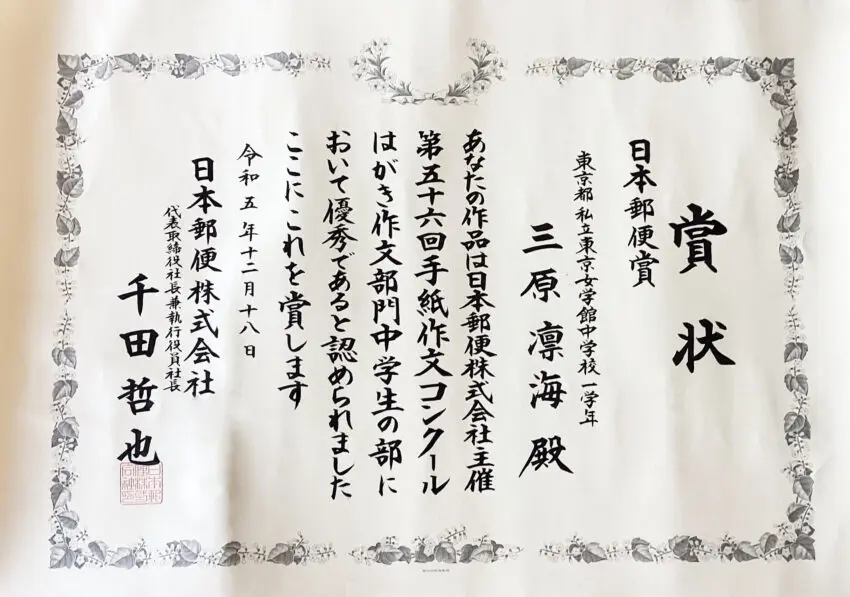 賞状
日本郵便賞
東京都 私立東京女学館中学校 一学年
三原凛海 殿
あなたの作品は日本郵便株式会社主催
第五十六回手紙作文コンクール
はがき作文部門中学生の部に
おいて優秀であると認められました
ここにこれを賞します
令和五年十二月十八日
日本郵便株式会社
代表取締役社長兼執行役員社長
千田哲也